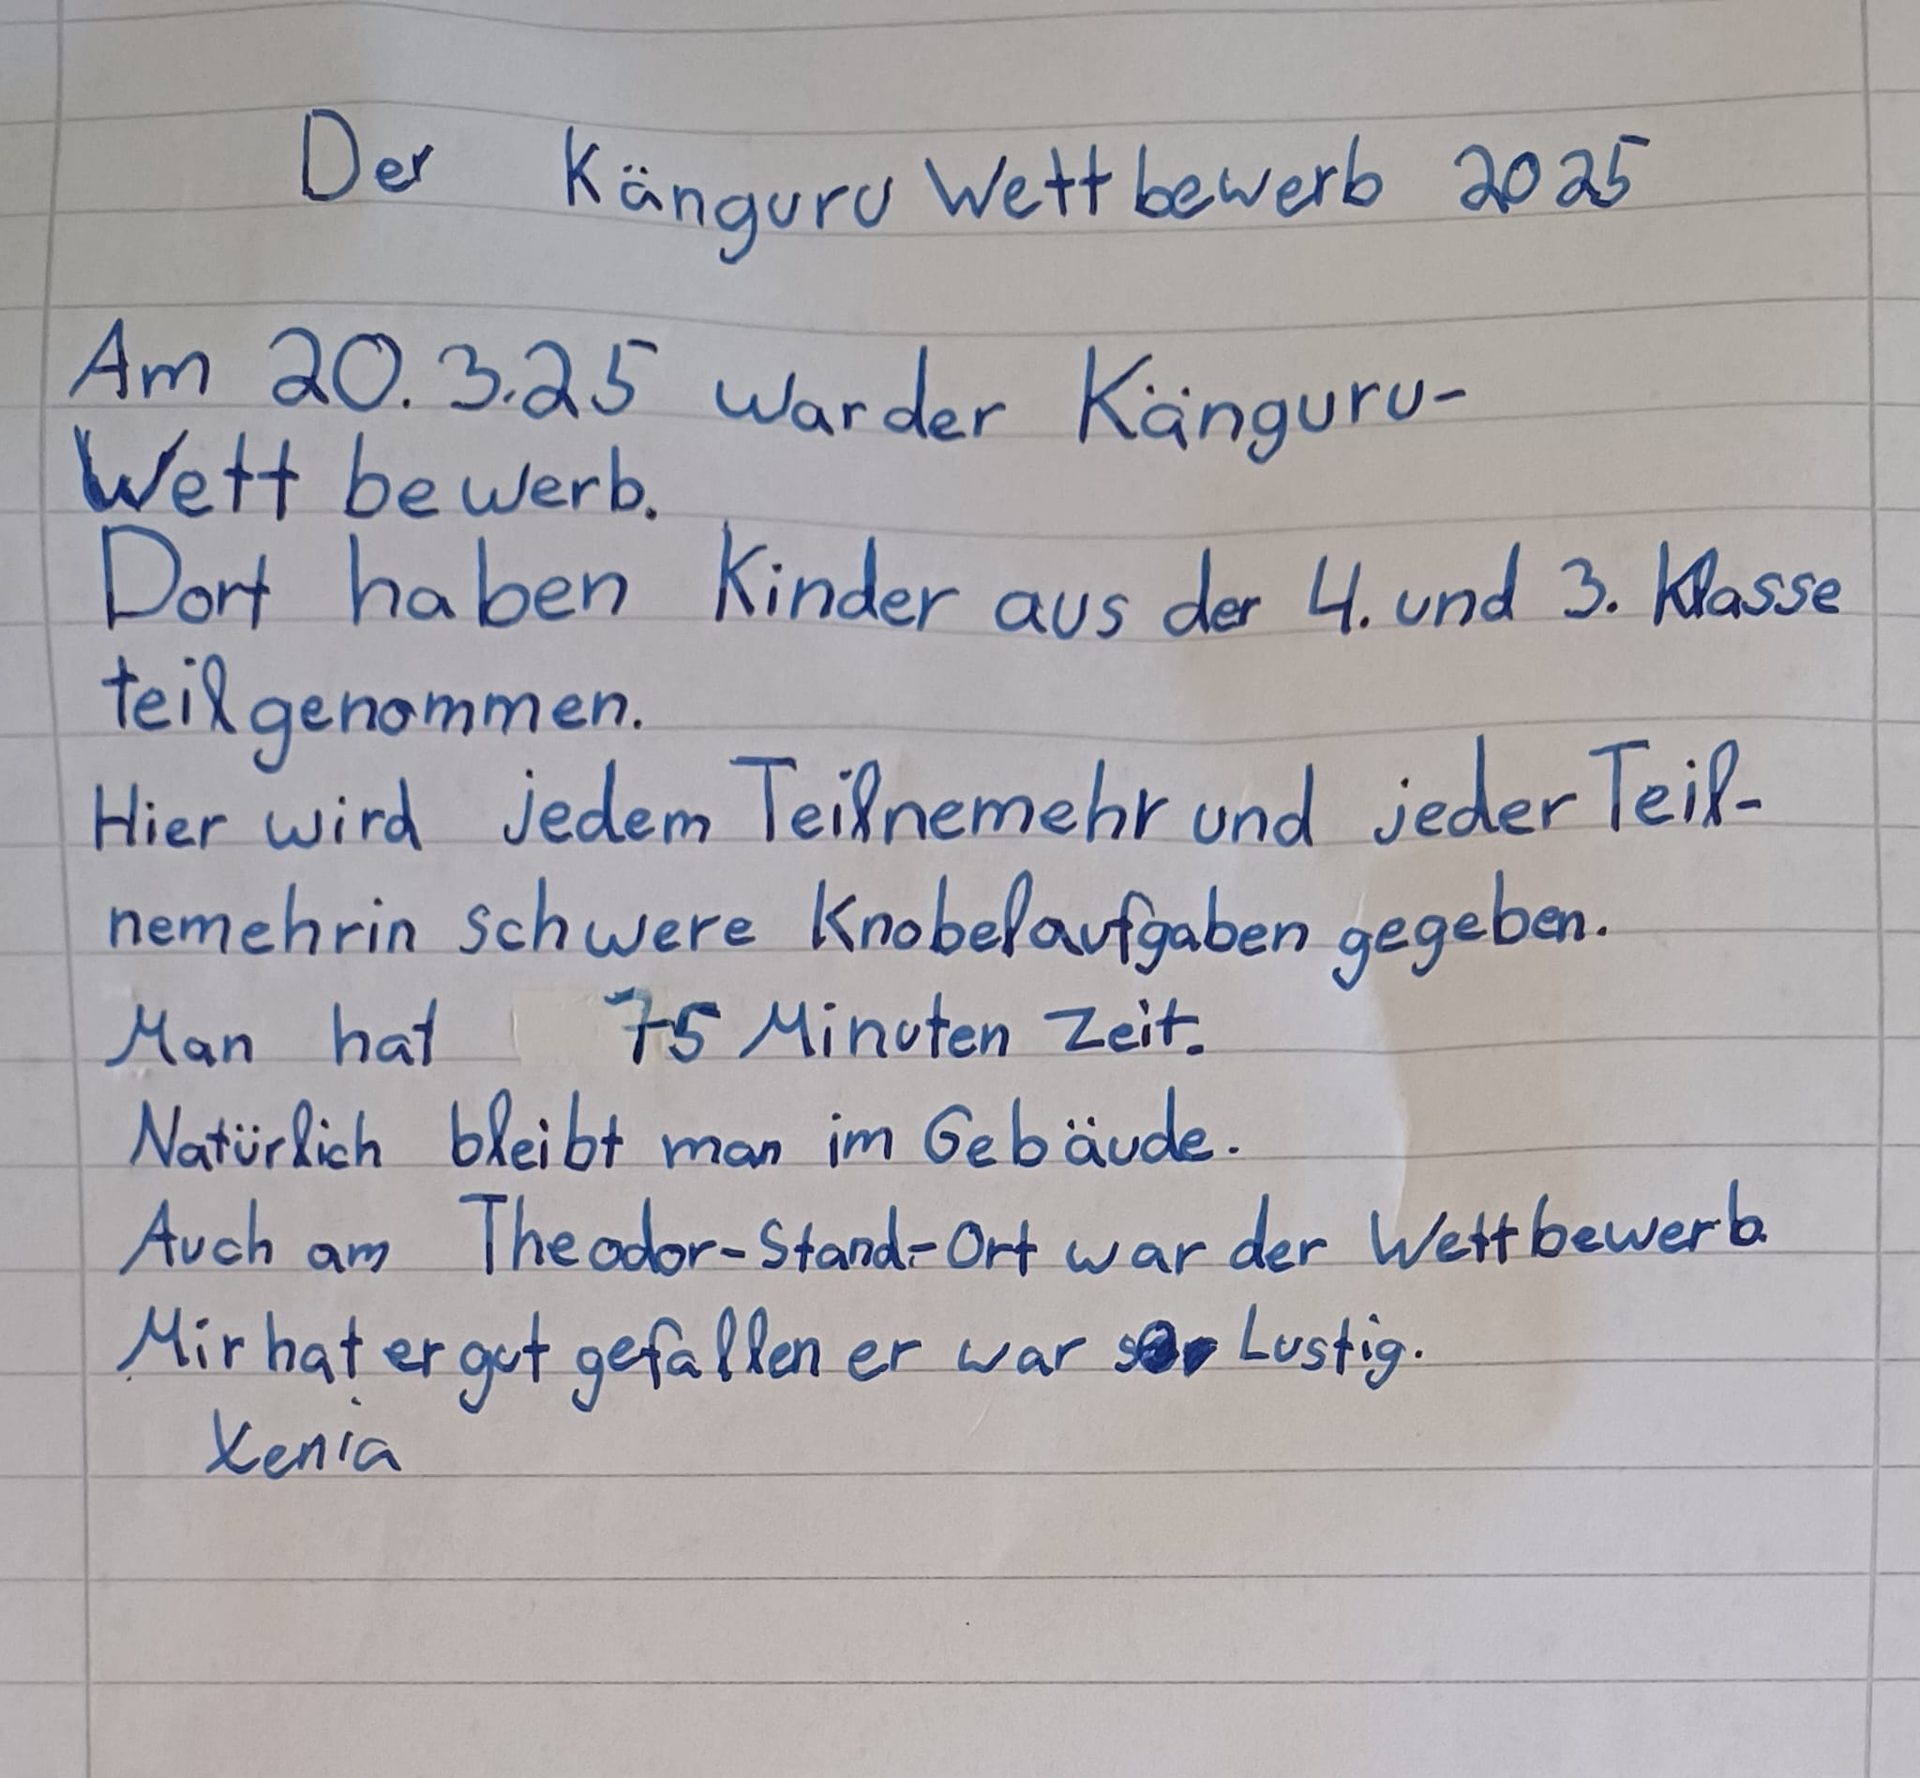 Der Känguru Wettbewerb 2025
Am 20.3.25 war der Känguru-
Wettbewerb.
Dort haben Kinder aus der 4. und 3. Klasse
teilgenommen.
Hier wird jedem Teilnemehr und jeder Teil-
nemehrin schwere Knobelaufgaben gegeben.
Man hat 75 Minuten Zeit.
Natürlich bleibt man im Gebäude.
Auch am Theodor-Stand-Ort war der Wettbewerb.
Mir hat er gut gefallen er war Lustig.
Xenia